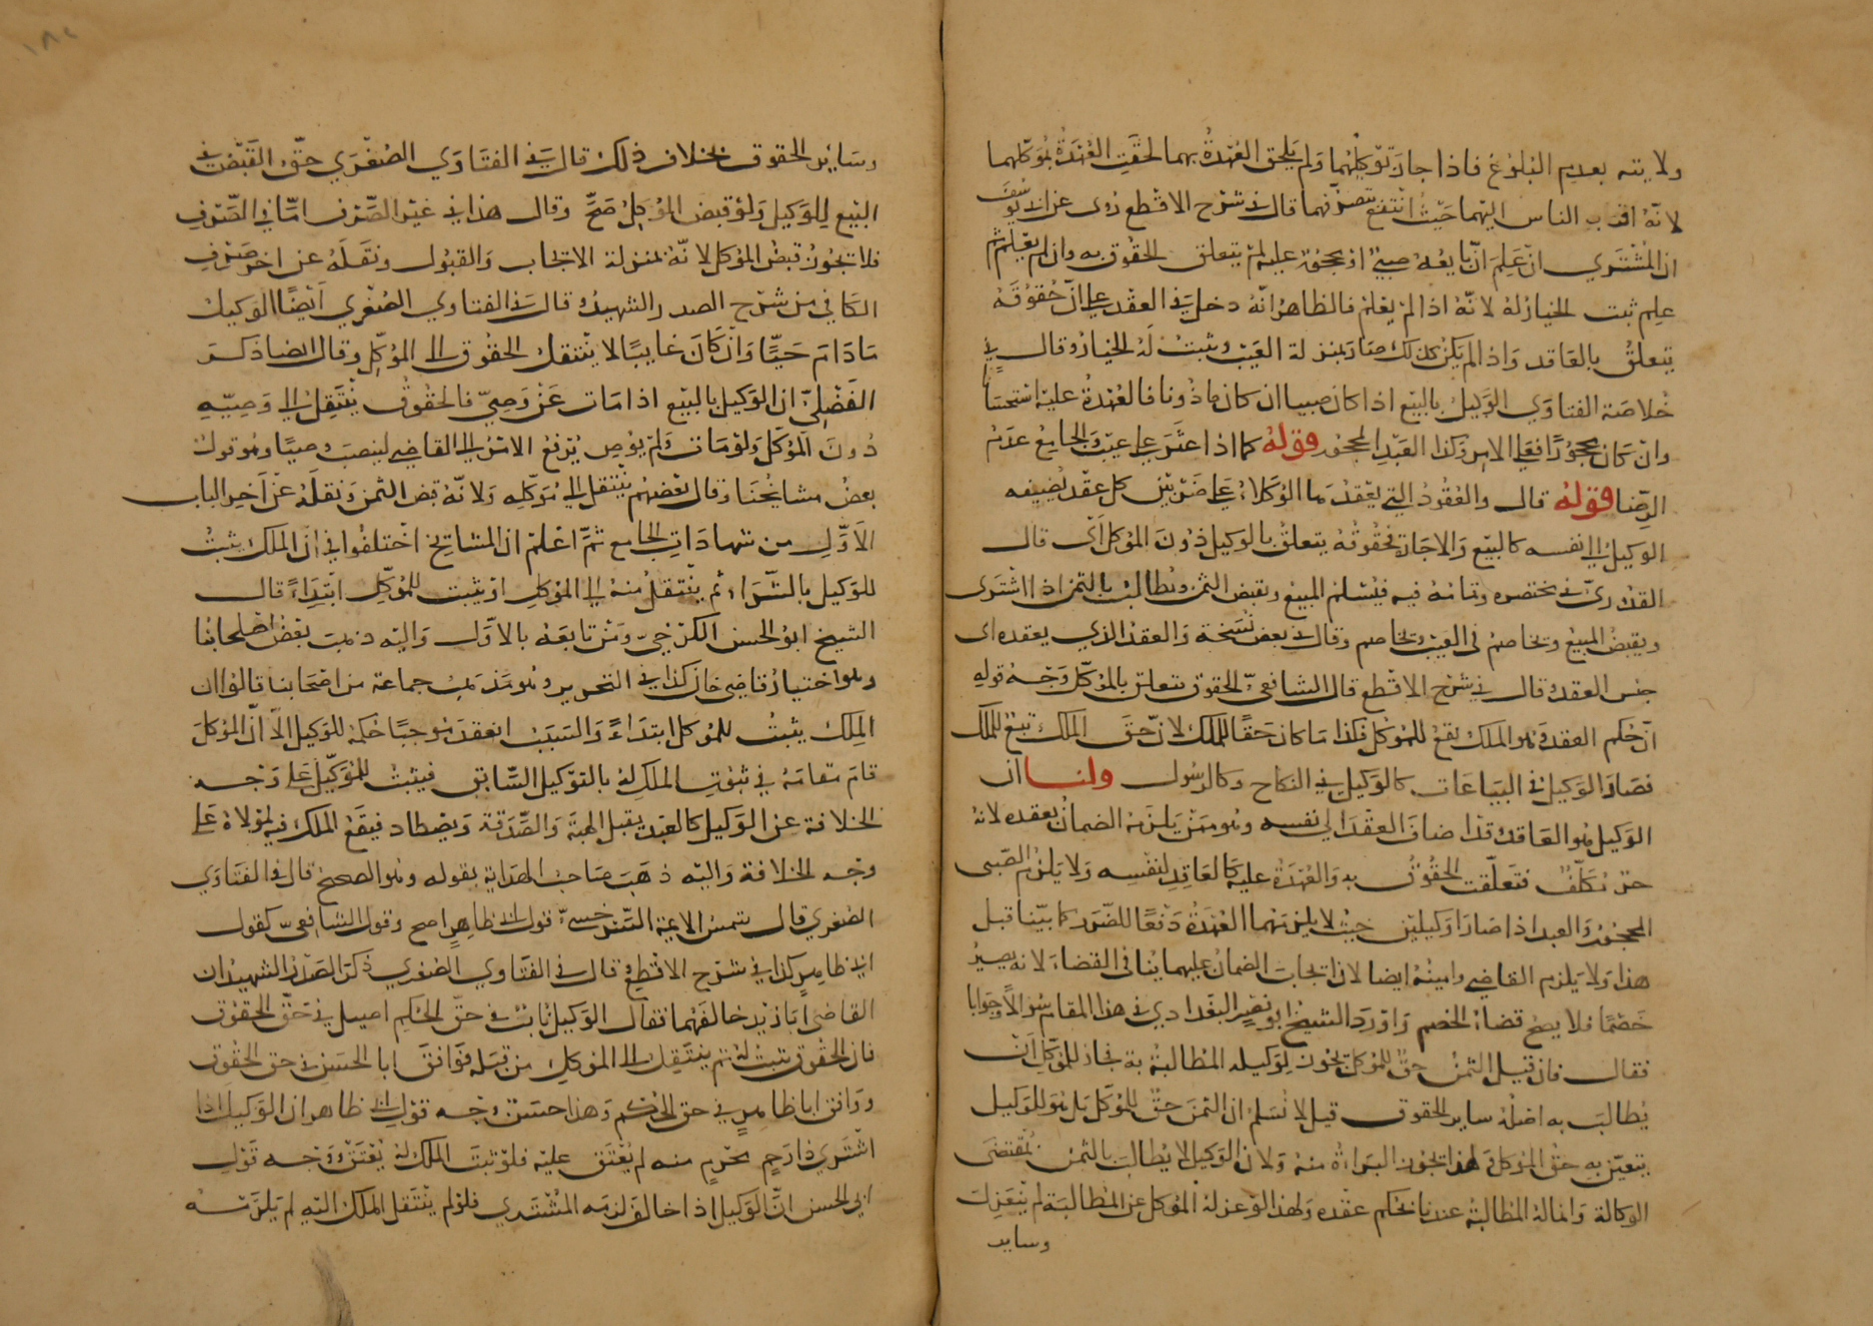 ولايته بعدم البلوغ فاذا جاز توكيلهما ولم يلحق العهدة بهما لحقت العهدة بموكلهما
لانه اقرب الناس اليهما حيث انتفع بتصرفهما قال في شرح الاقطع روى عن ابي يوسف
ان المشتري ان علم ان بايعه صبي او محجور عليه لم يتعلق الحقوق به وان لم يعلم ثم
علم ثبت الخيار له لانه اذا لم يعلم فالظاهر انه دخل في العقد على ان حقوقه
يتعلق بالعاقد واذا لم يكن كذلك صار بمنزلة العيب ويثبت له الخيار وقال في
خلاصة الفتاوي الوكيل بالبيع اذا كان صبيا ان كان ماذونا فالعهدة عليه استحسانا
وان كان محجورا فعلى الامر وكذا العبد المحجور قوله كما اذا عثر على عيب والجامع عدم
الرضا قوله قال والعقود التي يعقدها الوكلاء على ضربين كل عقد يضيفه
الوكيل الى نفسه كالبيع والاجارة فحقوقه يتعلق بالوكيل دون الموكل اي قال
القدوري في مختصره وتمامه فيه فيسلم المبيع ويقبض الثمن ويطالب بالثمن اذا اشترى
ويقبض المبيع ويخاصم في العيب ويخاصم وقال في بعض نسخه والعقد الذي يعقده اي
جنس العقد قال في شرح الاقطع قال الشافعي الحقوق تتعلق بالموكل وجه قوله
ان حكم العقد وهو الملك يقع للموكل فكذا ما كان حقا للملك لان حق الملك تبع للملك
فصار الوكيل في البياعات كالوكيل في النكاح وكالرسول ولنا ان
الوكيل هو العاقد قد اضاف العقد الى نفسه وهو ممن يلزمه الضمان بعقده لانه
حر مكلف فتعلقت الحقوق به والعهدة عليه كالعاقد لنفسه ولا يلزم الصبي
المحجور والعبد اذا صارا وكيلين حيث لا يلزمهما العهدة دفعا للضرر كما بينا قبل
هذا ولا يلزم القاضي وامينه ايضا لان ايجاب الضمان عليهما ينافي القضاء لانه يصير
خصما فلا يصح قضاء الخصم واورد الشيخ ابو نصر البغدادي في هذا المقام سوالا وجوابا
فقال فان قيل الثمن حق للموكل يجوز لوكيله المطالبة به فجاز للموكل ان
يطالب به اصله ساير الحقوق قيل لا نسلم ان الثمن حق للموكل بل هو للوكيل
يتعين به حق الموكل ولهذا يجوز البراءة منه ولان الوكيل لا يطالب بالثمن بمقتضى
الوكالة وانما له المطالبة عندنا بحكم عقده ولهذا لو عزله الموكل عن المطالبة لم ينعزل
وساير
وساير الحقوق بخلاف ذلك قال في الفتاوي الصغرى حق القبض في
البيع للوكيل ولو قبض الموكل صح وقال هذا في غير الصرف اما في الصرف
فلا يجوز قبض الموكل لانه بمنزلة الايجاب والقبول ونقله عن اخر صرف
الكافي من شرح الصدر الشهيد وقال في الفتاوي الصغرى ايضا الوكيل
ما دام حيا وان كان غايبا لا ينتقل الحقوق الى الموكل وقال ايضا ذكر
الفضلي ان الوكيل بالبيع اذا مات عن وصي فالحقوق ينتقل الى وصيه
دون الموكل ولو مات ولم يوص يرفع الامر الى القاضي لينصب وصيا وهو قول
بعض مشايخنا وقال بعضهم ينتقل الى موكله ولانه قبض الثمن ونقله عن اخر الباب
الاول من شهادات الجامع ثم اعلم ان المشايخ اختلفوا في ان الملك يثبت
للوكيل بالشراء ثم ينتقل منه الى الموكل او يثبت للموكل ابتداء قال
الشيخ ابو الحسن الكرخي ومن تابعه بالاول واليه ذهب بعض اصحابنا
وهو اختيار قاضي خان كذا في التحرير وهو مذهب جماعة من اصحابنا قالوا ان
الملك يثبت للموكل ابتداء والسبب انعقد موجبا حكمه للوكيل الا ان الموكل
قام مقامه في ثبوت الملك له بالتوكيل السابق فيثبت للموكل على وجه
الخلافة عن الوكيل كالعبد يقبل الهبة والصدقة ويصطاد فيقع الملك فيه لمولاه على
وجه الخلافة واليه ذهب صاحب الهداية بقوله وهو الصحيح قال في الفتاوي
الصغرى قال شمس الايمة السرخسي قول ابي طاهر اصح وقول الشافعي كقول
ابي طاهر كذا في شرح الاقطع وقال في الفتاوي الصغرى ذكر الصدر الشهيد ان
القاضي ابا زيد خالفهما فقال الوكيل نايب في حق الحكم اصيل في حق الحقوق
فان الحقوق تثبت له ثم ينتقل الى الموكل من قبله فوافق ابا الحسن في حق الحقوق
ووافق ابا طاهر في حق الحكم وهذا حسن وجه قول ابي طاهر ان الوكيل اذا
اشترى ذا رحم محرم منه لم يعتق عليه فلو ثبت الملك له يعتق وجه قول
ابي الحسن ان الوكيل اذا خالف لزمه المشتري فلو لم ينتقل الملك اليه لم يلزمه